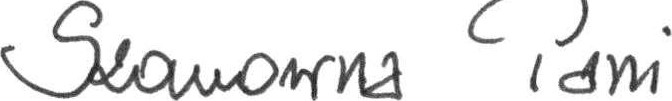 Szanowna Pani